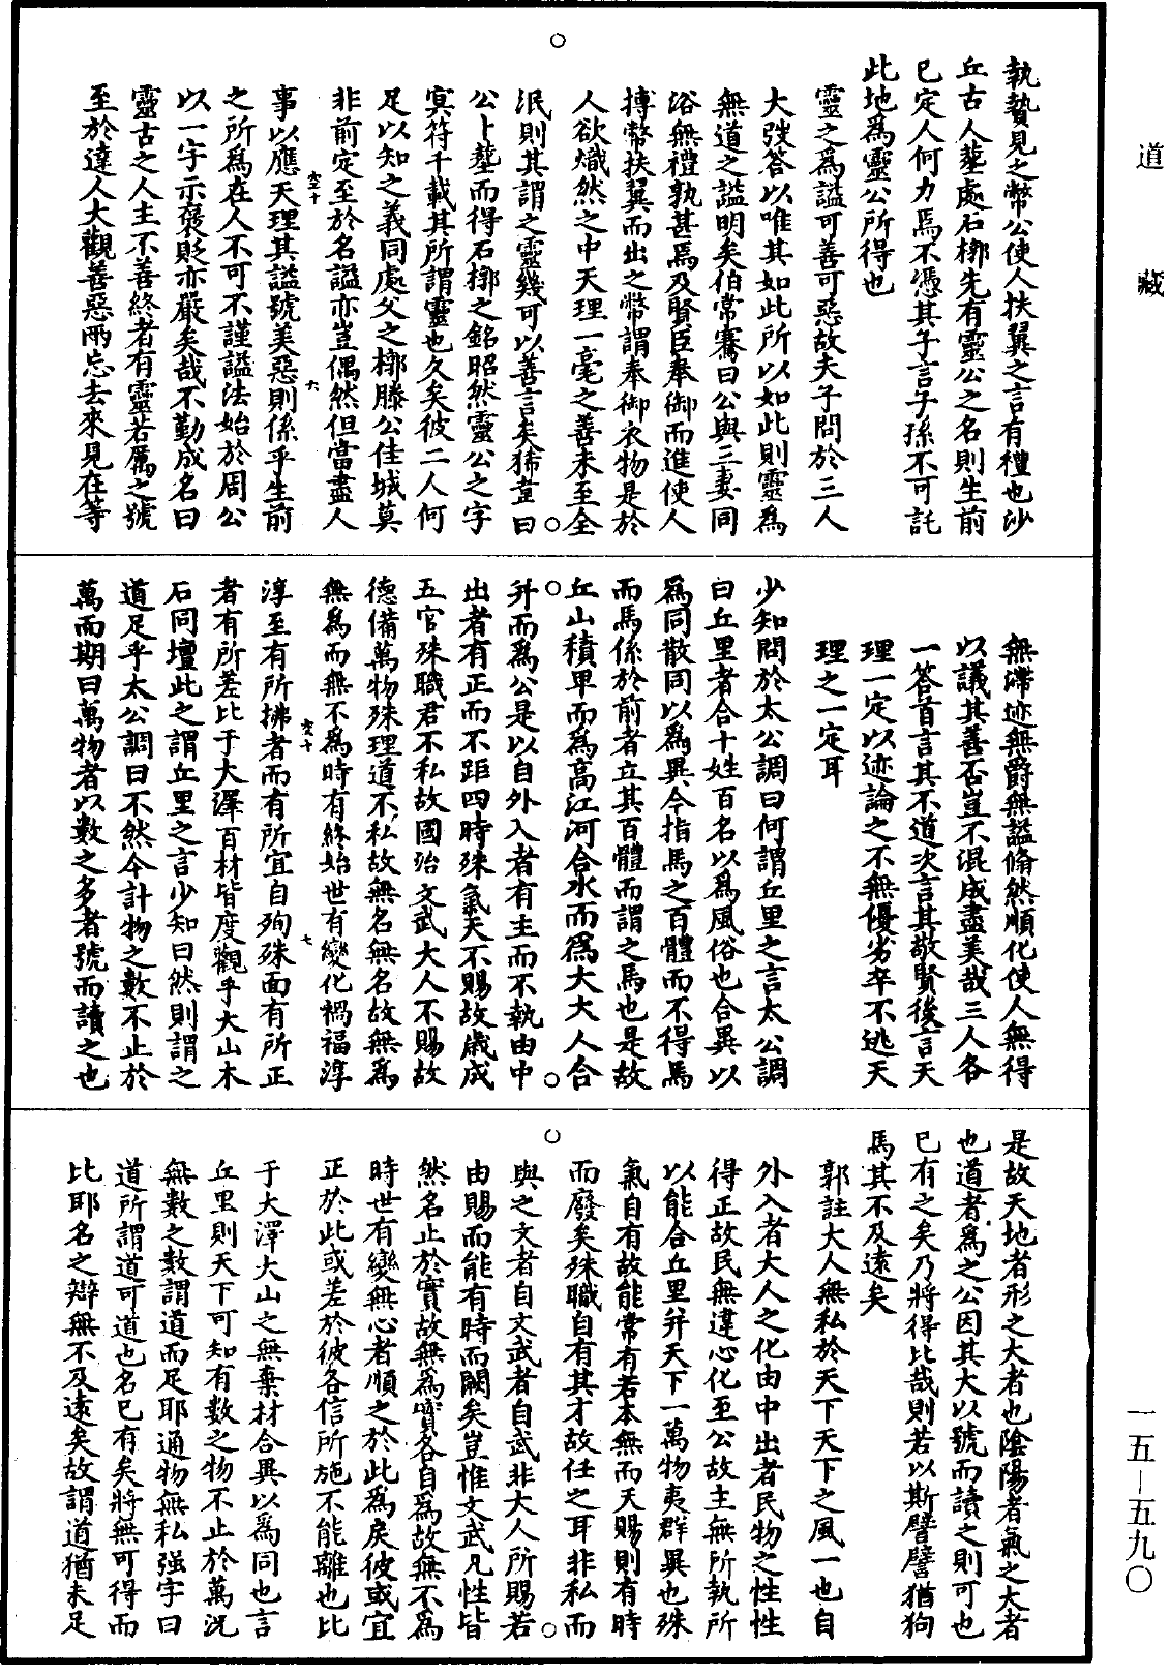 道藏
執贄見之幣公使人扶翼之言有禮也沙
丘古人塟處石槨先有靈公之名則生前
已定人何力焉不馮其子言子孫不可託
此地為靈公所得也
靈之為謚可善可惡故夫子問於三人
大弢答以唯其如此所以如此則靈為
無道之謚明矣伯常騫曰公與三妻同
浴無禮孰甚焉及賢臣奉御而進使人
搏幣扶翼而出之幣謂奉御衣物是於
人欲熾然之中天理一毫之善未至全
泯則其謂之靈幾可以善言矣狶韋曰
公卜塟而得石槨之銘昭然靈公之字
冥符千載其所謂靈也久矣彼二人何
足以知之義同處父之槨滕公佳城莫
非前定至於名謚亦豈偶然但當盡人
事以應天理其謚號美惡則係乎生前
之所為在人不可不謹謚法始於周公
以一字示褒貶亦嚴矣哉不勤成名曰
靈古之人主不善終者有靈若厲之號
至於達人大觀善惡兩忘去來見在等
無滯迹無爵無謚翛然順化使人無得
以議其善否豈不混成盡美哉三人各
一答首言其不道次言其敬賢後言天
理一定以迹論之不無優劣卒不逃天
理之一定耳
少知問於太公調曰何謂丘里之言太公調
曰丘里者合十姓百名以為風俗也合異以
為同散同以為異今指馬之百體而不得馬
而馬係於前者立其百體而謂之馬也是故
丘山積卑而為高江河合水而為大大人合
并而為公是以自外入者有主而不執由中
出者有正而不距四時殊氣天不賜故歲成
五官殊職君不私故國治文武大人不賜故
德備萬物殊理道不私故無名無名故無為
無為而無不為時有終始世有變化禍福淳
淳至有所拂者而有所宜自殉殊面有所正
者有所差比于大澤百材皆度觀乎大山木
石同壇此之謂丘里之言少知曰然則謂之
道足乎太公調曰不然今計物之數不止於
萬而期曰萬物者以數之多者號而讀之也
是故天地者形之大者也陰陽者氣之大者
也道者為之公因其大以號而讀之則可也
已有之矣乃將得比哉則若以斯譬譬猶狗
馬其不及遠矣
郭註大人無私於天下天下之風一也自
外入者大人之化由中出者民物之性性
得正故民無違心化至公故主無所執所
以能合丘里并天下一萬物夷群異也殊
氣自有故能常有若本無而天賜則有時
而廢矣殊職自有其才故任之耳非私而
與之文者自文武者自武非大人所賜若
由賜而能有時而闕矣豈惟文武凡性皆
然名止於實故無為實各自為故無不為
時世有變無心者順之於此為戾彼或宜
正於此或差於彼各信所施不能離也比
于大澤大山之無棄材合異以為同也言
丘里則天下可知有數之物不止於萬況
無數之數謂道而足耶通物無私強字曰
道所謂道可道也名已有矣將無可得而
比耶名之辯無不及遠矣故謂道猶未足
一五—五九〇